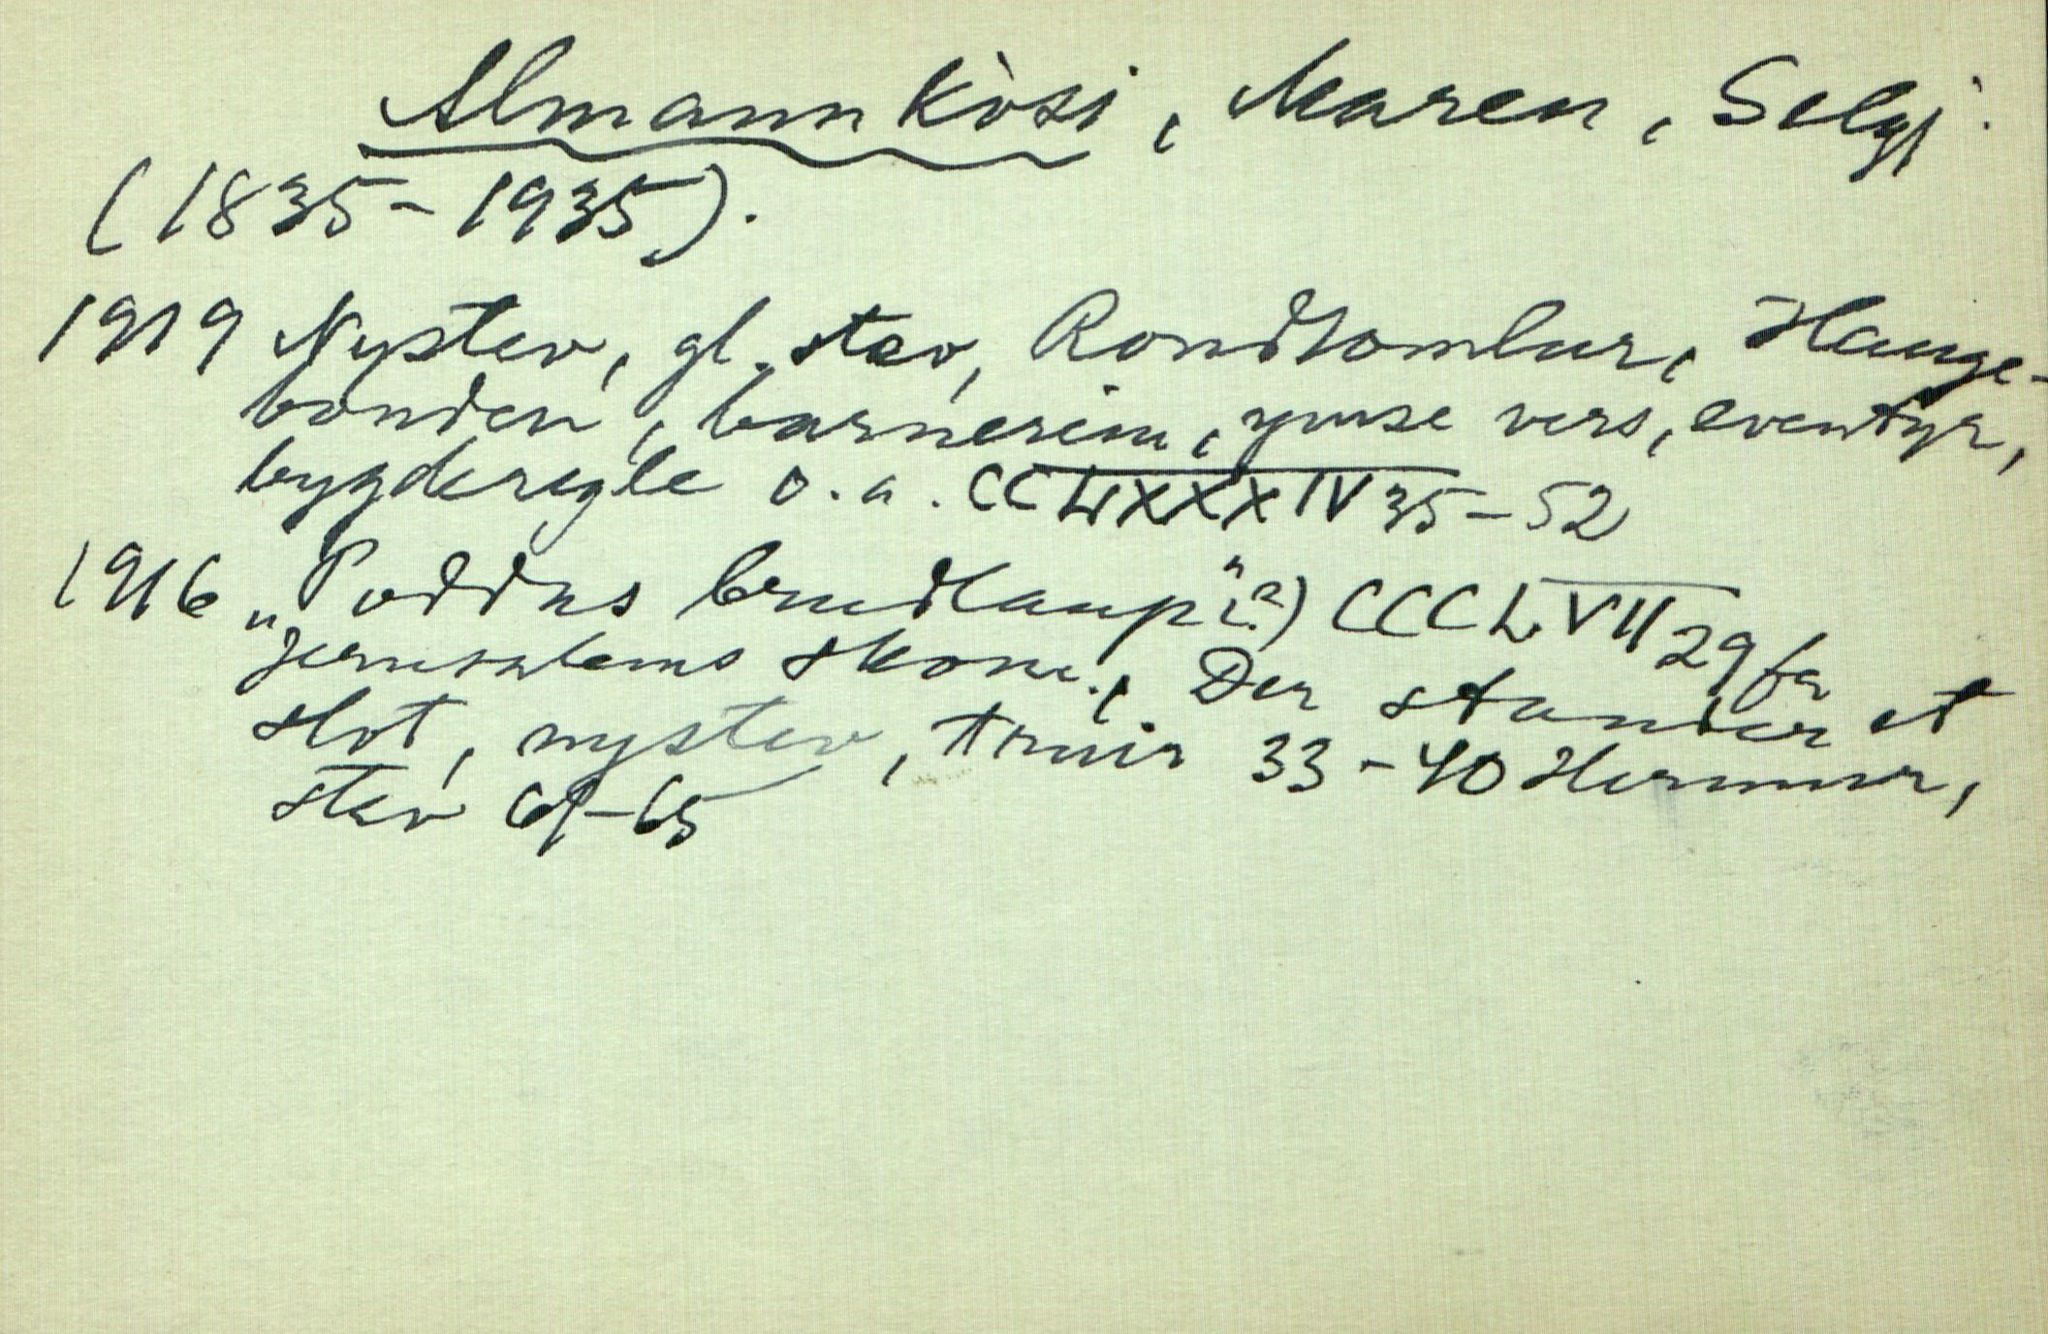 Almannkòsi, Maren, Selgj.
(1835-1935).
1919 Nystev, gl. stev, Rondlombur, Hauge-
bonden, barnerim, ymse vers, eventyr,
bygderegle o.a. CCLXXXIV 35-52
1916 "Poddus brudlaup" (?) CCCLVII 29 fr
Jerusalems skom., Der stander et
slot, nystev, truir 33-40
stev 61-65